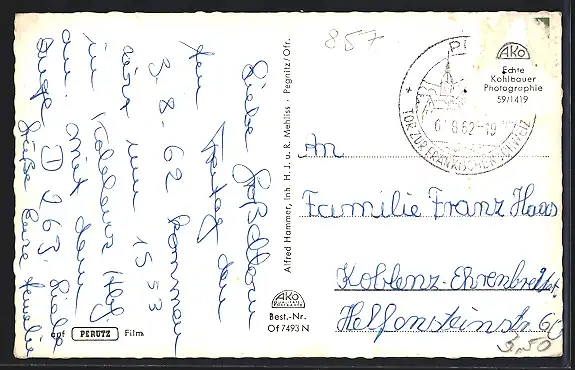 857
Liebe Großeltern
Am Freitag den
3. 8. 62 kommen
wir um 15 53
in Koblenz Hbf
an. Mit dem
D 263. Viele
Grüße Eure
auf PERUTZ Film
Alfred Hammer, Inh. H. J. u. R. Mehliss · Pegnitz/Ofr.
AKO
Best.-Nr.
Of 7493 N
AKO
Echte
Kohlbauer
Photographie
59/1419
8.62-19
TOR ZUR FRÄNKISCHEN SCHWEIZ
An
Familie Franz Haas
Koblenz-Ehrenbreitst.
Helfensteinstr 60
3,50